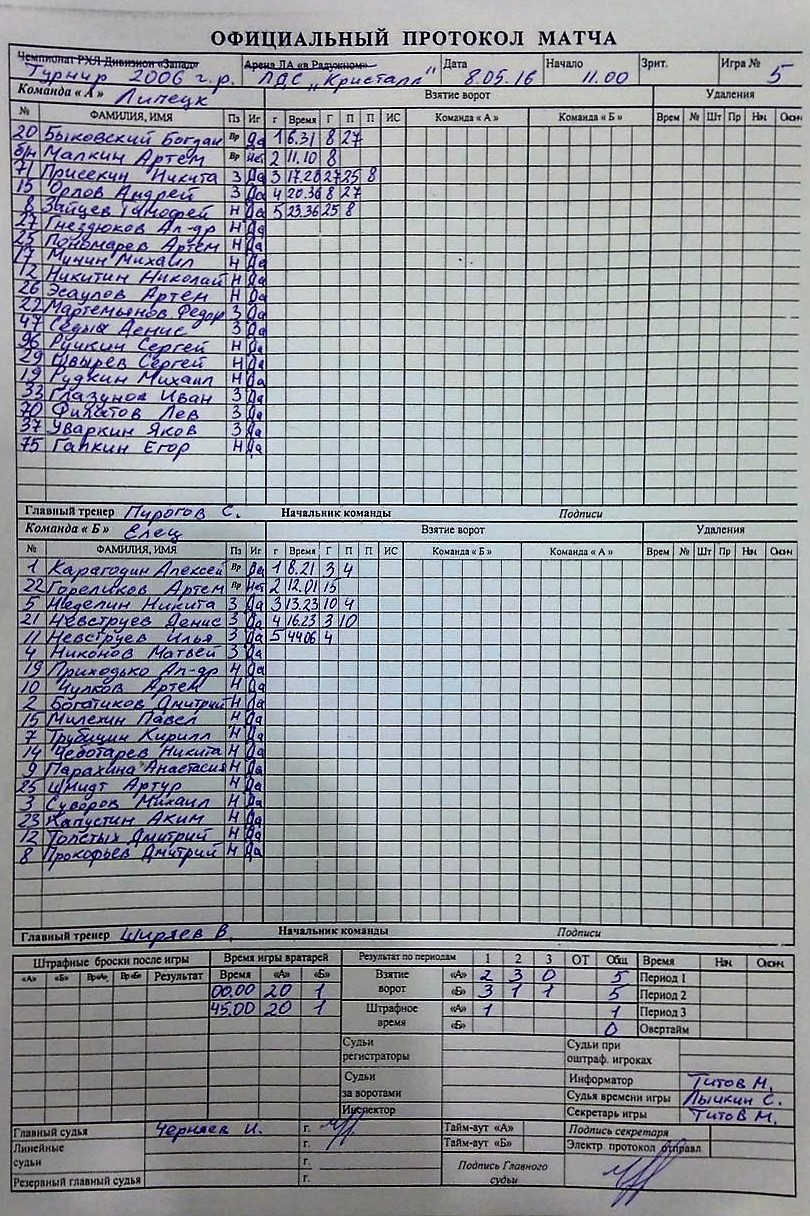 ОФИЦИАЛЬНЫЙ ПРОТОКОЛ МАТЧА
Чемпионат РХЛ Дивизион «Запад» Арена ЛА «в Радужном» Дата Начало Зрит. Игра №
Турнир 2006 г.р. ЛДС „Кристалл" 8.05.16 11.00 5
Команда « А » Липецк Взятие ворот Удаления
№ ФАМИЛИЯ, ИМЯ Пз Иг г Время Г П П ИС Команда « А » Команда « Б » Врем № Шт Пр Нач Окон
20 Быковский Богдан Вр Да 1 6.31 8 27
б/н Малкин Артём Вр Нет 2 11.10 8
71 Присекин Никита З Да 3 17.20 27 25 8
15 Орлов Андрей З Да 4 20.36 8 27
8 Зайцев Тимофей Н Да 5 23.36 25 8
27 Гнездюков Ал-др Н Да
25 Пономарев Артем Н Да
17 Минин Михаил Н Да
12 Никитин Николай Н Да
26 Эсаулов Артем Н Да
22 Мартемьянов Федор З Да
47 Седых Денис З Да
96 Ручкин Сергей Н Да
29 Швырев Сергей Н Да
19 Рудкин Михаил Н Да
33 Глазунов Иван З Да
70 Филатов Лев З Да
37 Уваркин Яков З Да
75 Гапкин Егор Н Да
Главный тренер Пирогов С. Начальник команды Подписи
Команда « Б » Елец Взятие ворот Удаления
№ ФАМИЛИЯ, ИМЯ Пз Иг г Время Г П П ИС Команда « Б » Команда « А » Врем № Шт Пр Нач Окон
1 Карагодин Алексей Вр Да 1 8.21 3 4
22 Гореликов Артем Вр Нет 2 12.01 15
5 Неделин Никита З Да 3 13.23 10 4
21 Невструев Денис З Да 4 16.23 3 10
11 Невструев Илья З Да 5 44.06 4
4 Никонов Матвей З Да
19 Приходько Ал-др Н Да
10 Чулков Артем Н Да
2 Богатиков Дмитрий Н Да
15 Милехин Павел Н Да
7 Трубицин Кирилл Н Да
14 Чеботарев Никита Н Да
9 Парахина Анастасия Н Да
25 Шмидт Артур Н Да
3 Суворов Михаил Н Да
23 Капустин Аким Н Да
12 Толстых Дмитрий Н Да
8 Прокофьев Дмитрий Н Да
Главный тренер Ширяев В. Начальник команды Подписи
Штрафные броски после игры Время игры вратарей Результат по периодам 1 2 3 ОТ Общ Время Нач Окон
«А» «Б» Вр«А» Вр«Б» Результат Время «А» «Б» Взятие ворот «А» 2 3 0 5 Период 1
00.00 20 1 «Б» 3 1 1 5 Период 2
45.00 20 1 Штрафное время «А» 1 1 Период 3
«Б» 0 Овертайм
Судьи регистраторы Судьи при оштраф. игроках
Судьи за воротами Информатор Титов М.
Судья времени игры Лычкин С.
Инспектор Секретарь игры Титов М.
Главный судья Черняев И. г. Тайм-аут «А» Подпись секретаря
Линейные судьи г. Тайм-аут «Б» Электр протокол отправл
г. Подпись Главного судьи
Резервный главный судья г.